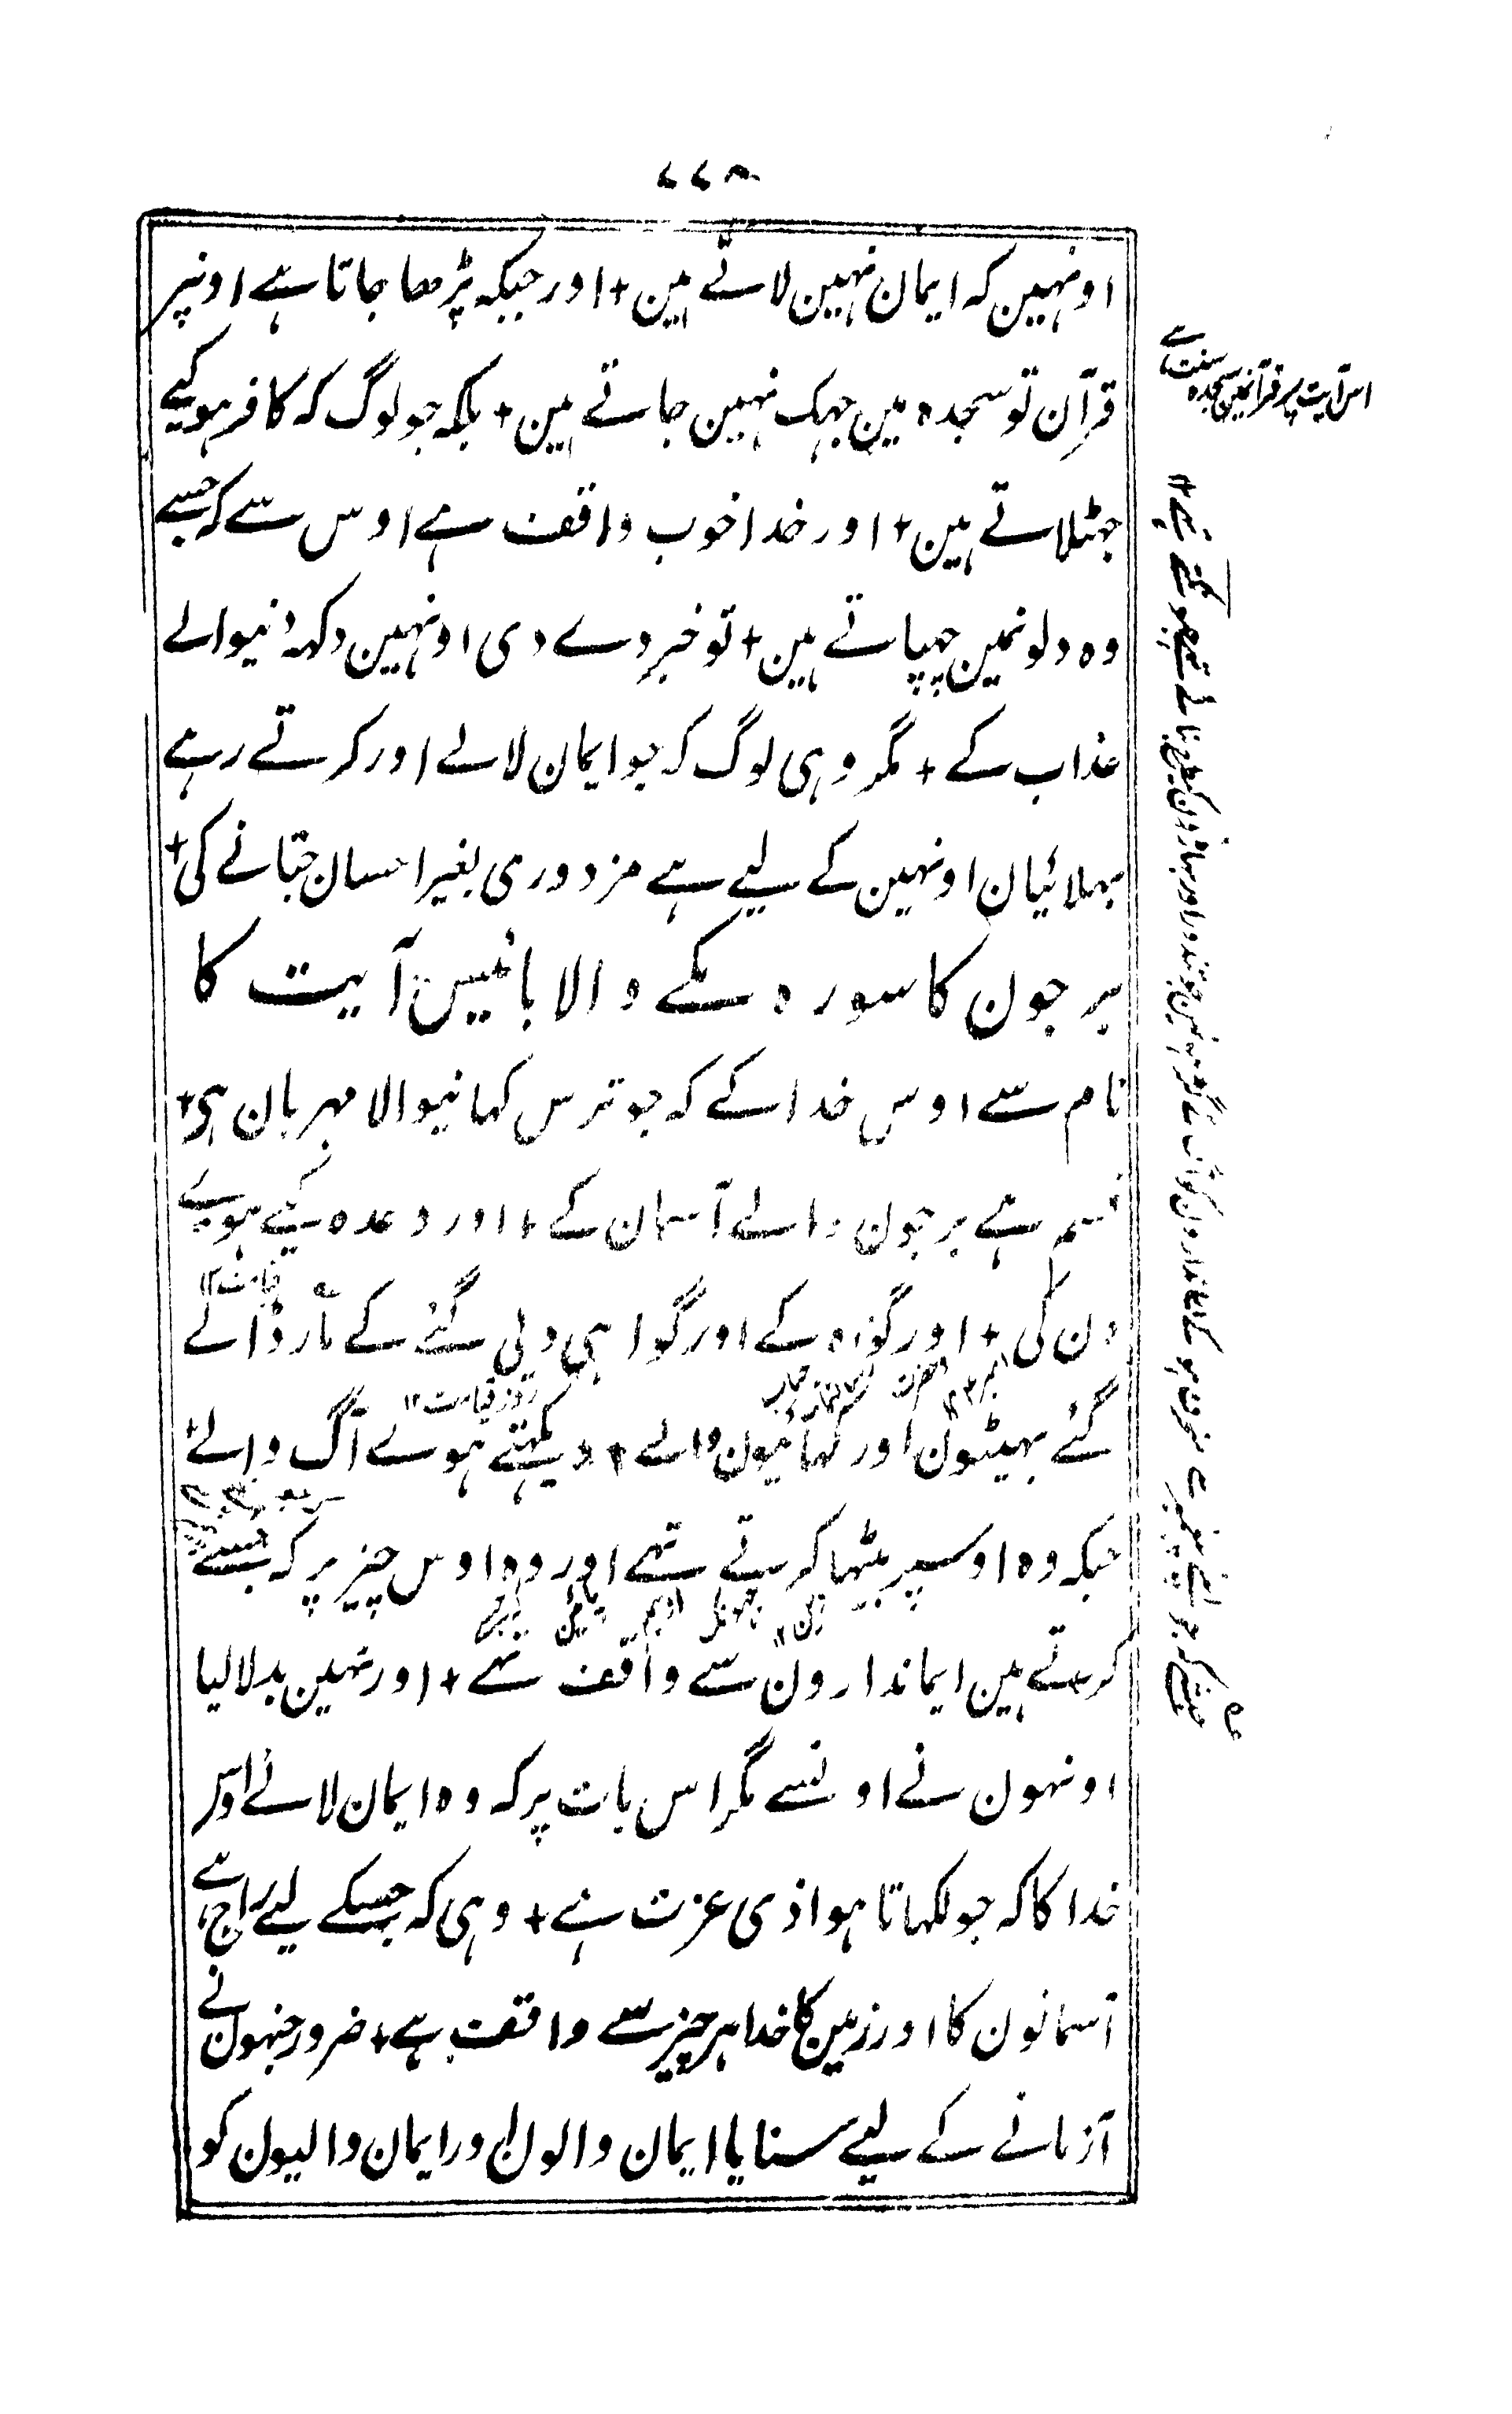 ۷۷۸
اونہین کہ ایمان نہین لاتے ہین + اور جبکہ پڑھا جاتا ہے اونپر
قرآن تو سجدہ مین جہک نہین جاتے ہین + بلکہ جو لوگ کہ کافر ہوگیے
جہٹلاتے ہین + اور خدا خوب واقف ہے اوس سے کہ جسے
وہ دلونمین چہپاتے ہین + تو خبر دے دی اونہین دکہہ دنیوالے
عذاب کے + مگر وہی لوگ کہ جو ایمان لالے اور کرتے رہے
بہلائیان اونہین کے لیے ہے مزدوری بغیر احسان جتانے کی +
برجون کا سورہ مکے والا بائیس آیت کا
نام سے اوس خدا کے کہ جو ترس کہانیوالا مہربان ہی +
قسم ہے برجون والے آسمان کے + اور وعدہ کیے ہویے
دن کی + اور گواہ کے اور گواہی دلی گئے کے مار ڈالے
قیامت ۱۲
گئے بہیٹون اور کہائیون والے + دیکہتے ہولے آگ والے
روز قیامت ۱۲
جبکہ وہ اوسپر بیٹہا کرتے تہے اور وہ اوس چیز پر کہ جسے
کرتے ہین ایماندارون سے واقف تہے + اور نہین بدلا لیا
اونہون نے اونسے مگر اس بات پر کہ وہ ایمان لالے اوس
خدا کا کہ جو لکہاتا ہوا ذی عزت ہے + وہی کہ جسکے لیے راج ہے
آسمانون کا اور زمین کا خدا ہر چیز سے واقف ہے + ضرور جنہون نے
آزمانے کے لیے ستایا ایمان والون اور ایمان والیون کو
اس آیت پر قرآنمین سجدہ سنت ہے